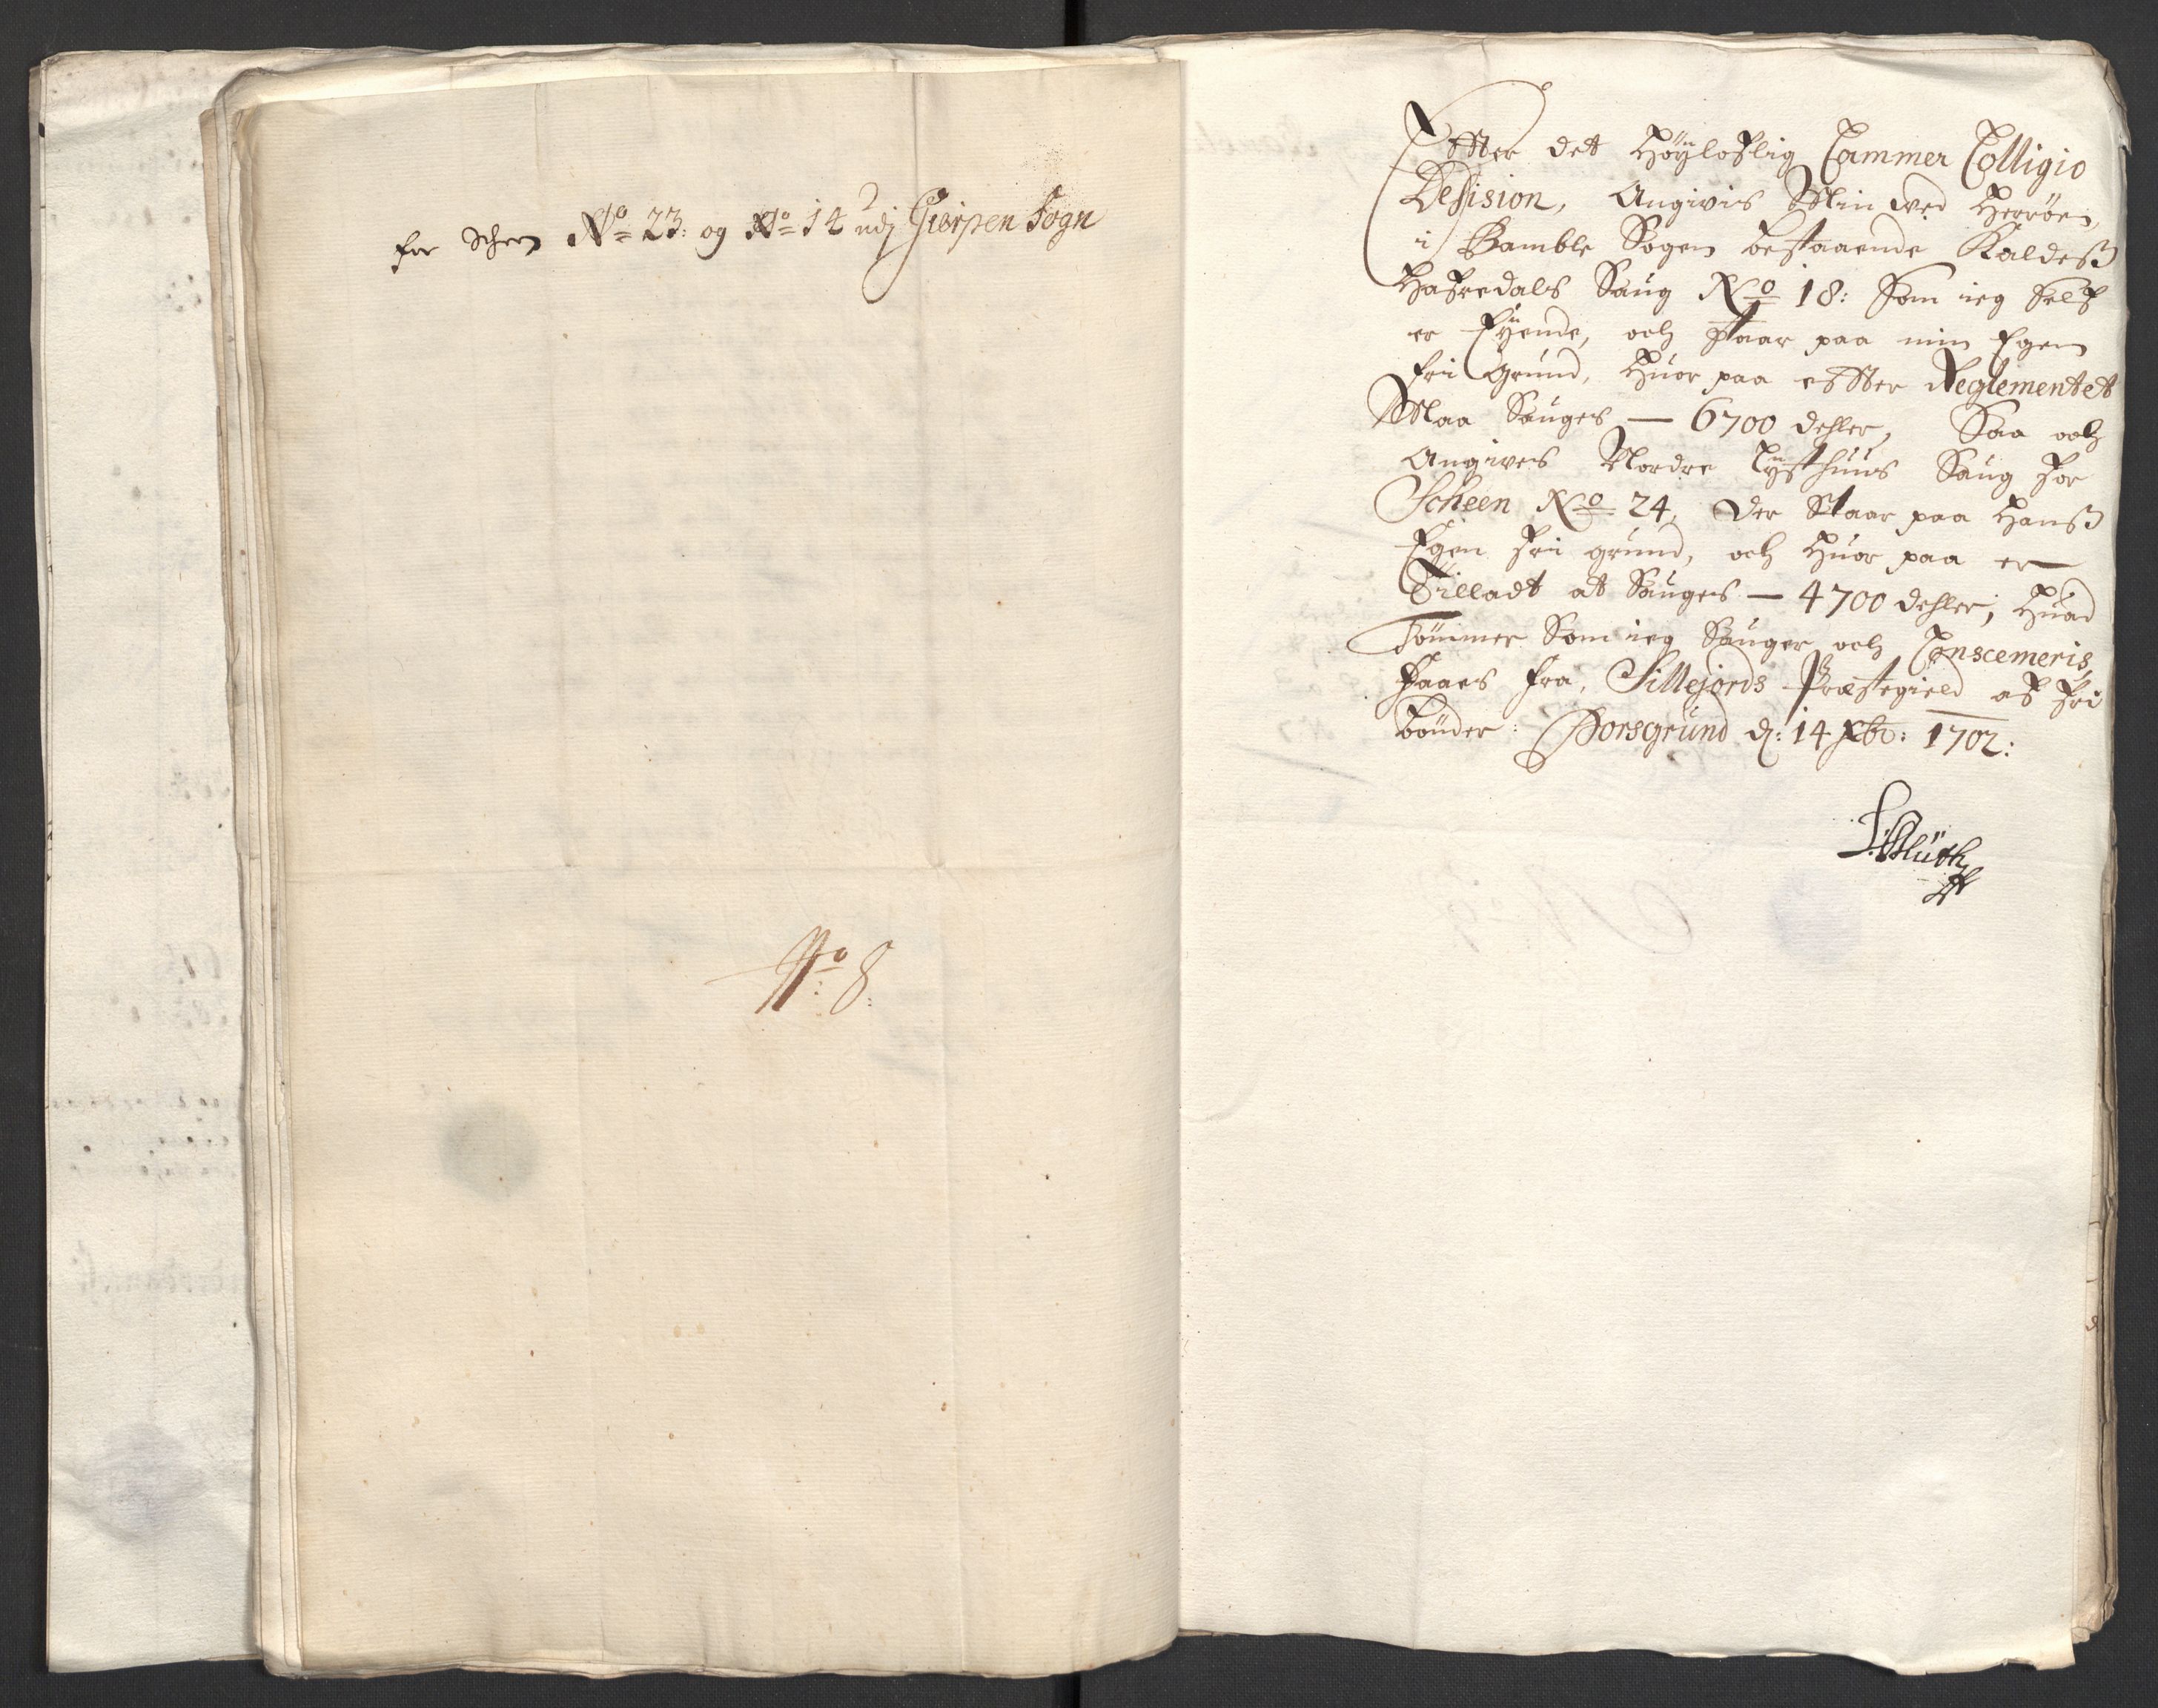 for Scheen No 23: og No 14 udj Gierpen Sogn
No: 8:
Effter det Höyloflig Cammer Colligio
Desision, Angivis Min wed Herröen,
i Bamble Sogen bestaaende Kaldeß
Hafredals Saug No 18: Som ieg Self
er Eÿende, och staar paa min Egen
fri Grund, Huor paa effter Reglementet
Maa Sauges — 6700 dehler, Saa och
Angives Nordre Lysthuus Saug for
Scheen No 24, der Staar paa Hanß
Egen fri grund, och Huor paa er
Tilladt at Sauges — 4700 dehler, Huad
Tömmer Som ieg Sauger och Conscemeris,
faaes fra, Sillejords Præstegield af fri
bönder: Porsgrund d: 14 Xbr: 1702: